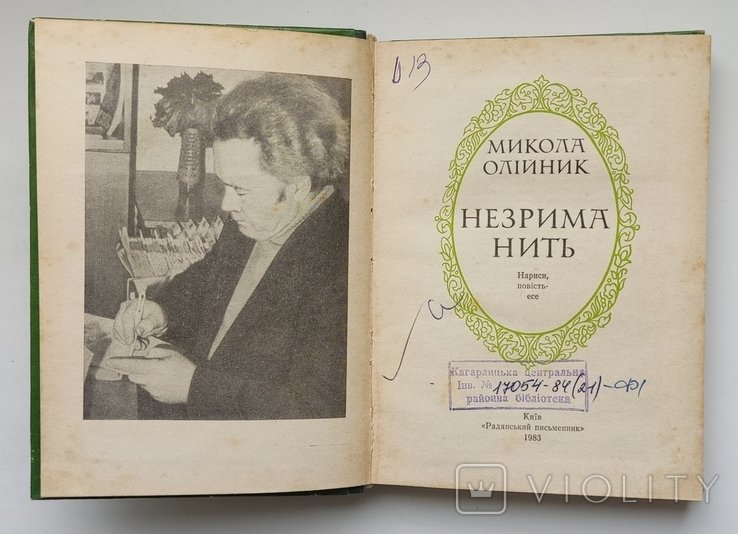 D 13
МИКОЛА
ОЛІЙНИК
НЕЗРИМА
НИТЬ
Нариси,
повість-
есе
Кагарлицька центральна
Інв. № 17054-84(21)-ФІ
районна бібліотека
Київ
«Радянський письменник»
1983
VIOLITY